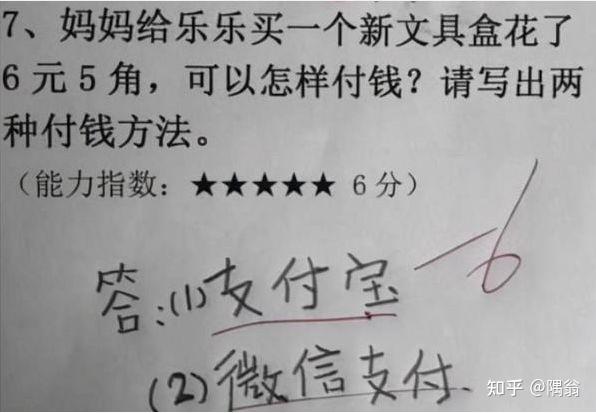 7、妈妈给乐乐买一个新文具盒花了
6元5角，可以怎样付钱？请写出两
种付钱方法。
（能力指数：★★★★★ 6分）
答:(1)支付宝 -6
(2)微信支付.
知乎 @隅翁